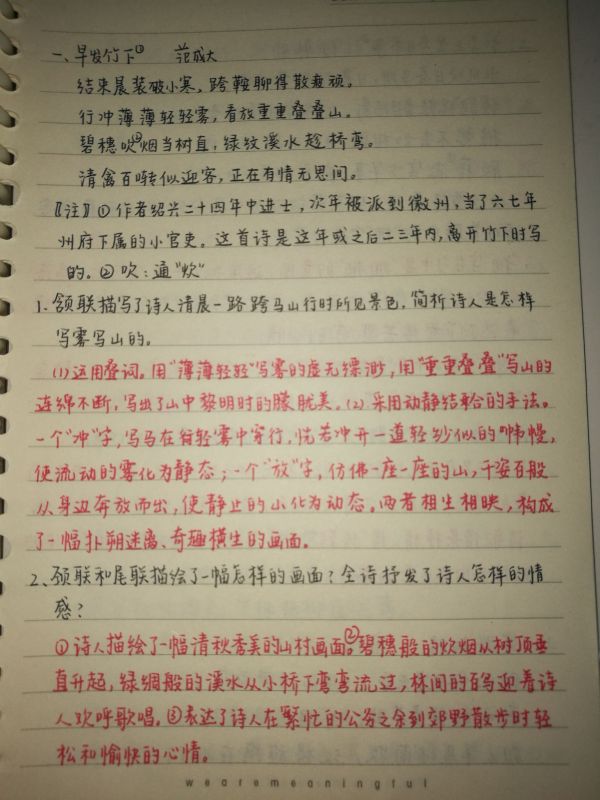 一、早发竹下① 范成大
结束晨装破小寒，跨鞍聊得散疲顽。
行冲薄薄轻轻雾，看放重重叠叠山。
碧穗吹②烟当树直，绿纹溪水趁桥弯。
清禽百啭似迎客，正在有情无思间。
〖注〗①作者绍兴二十四年中进士，次年被派到徽州，当了六七年
州府下属的小官吏。这首诗是这年或之后二三年内，离开竹下时写
的。②吹：通“炊”
1.颔联描写了诗人清晨一路跨马山行时所见景色，简析诗人是怎样
写雾写山的。
(1)运用叠词。用“薄薄轻轻”写雾的虚无缥渺，用“重重叠叠”写山的
连绵不断，写出了山中黎明时的朦胧美。(2)采用动静结合的手法。
一个“冲”字，写马在轻雾中穿行，恍若冲开一道轻纱似的帏幔，
使流动的雾化为静态；一个“放”字，仿佛一座一座的山，千姿百般
从身边奔放而出，使静止的山化为动态。两者相生相映，构成
了一幅扑朔迷离、奇趣横生的画面。
2、颈联和尾联描绘了一幅怎样的画面？全诗抒发了诗人怎样的情
感？
①诗人描绘了一幅清秋秀美的山村画面。②碧穗般的炊烟从树顶垂
直升起，绿绸般的溪水从小桥下弯弯流过，林间的百鸟迎着诗
人欢呼歌唱。③表达了诗人在繁忙的公务之余到郊野散步时轻
松和愉快的心情。
wearemeaningful